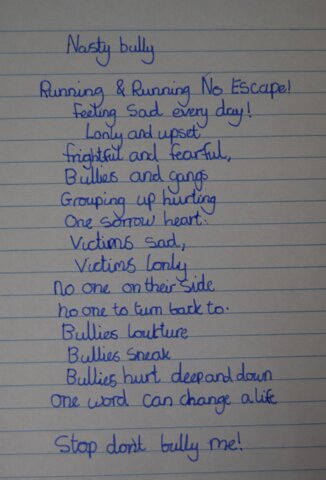 Nasty bully
Running & Running No Escape!
feeling sad every day!
Lonly and upset
frightful and fearful,
Bullies and gangs
Grouping up hurting
One sorrow heart.
Victims sad,
Victims lonly
no one on their side
no one to turn back to.
Bullies
Bullies sneak
Bullies hurt deep and down
One word can change a life
Stop don't bully me!